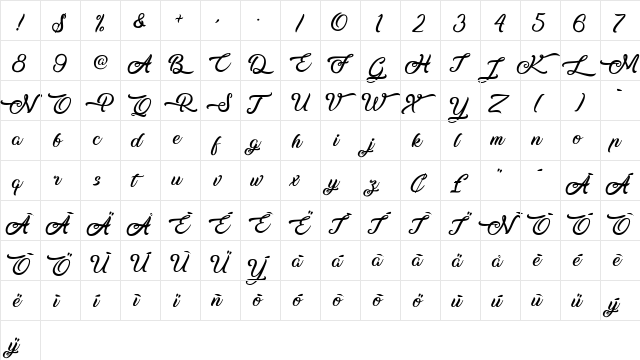 ! $ % & + , . / 0 1 2 3 4 5 6 7
8 9 @ A B C D E F G H I J K L M
N O P Q R S T U V W X Y Z ( )
a b c d e f g h i j k l m n o p
q r s t u v w x y z ₡ £ " À Á
Â Ã Ä Å È É Ê Ë Ì Í Î Ï Ñ Ò Ó Ô
Õ Ö Ù Ú Û Ü Ý à á â ã ä å è é ê
ë ì í î ï ñ ò ó ô õ ö ù ú û ü ý
ÿ